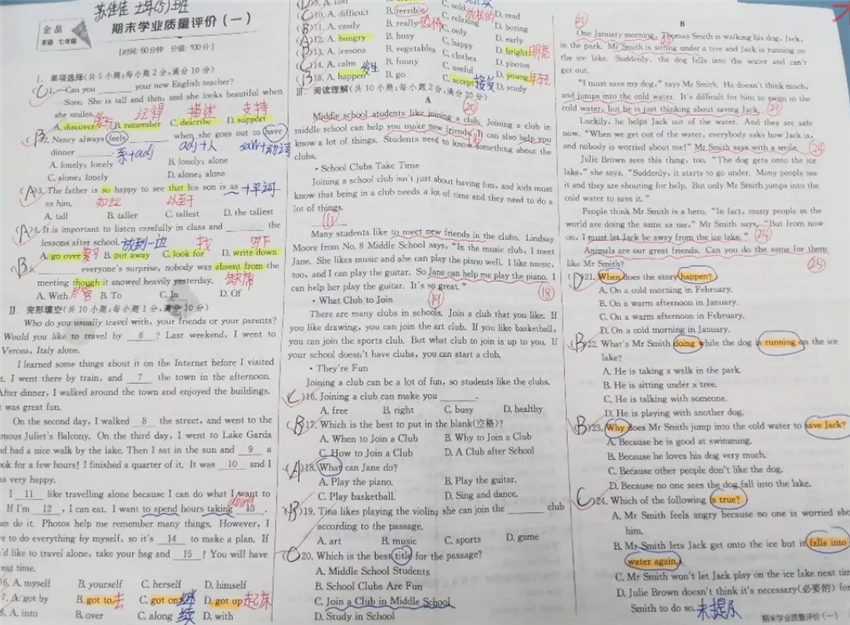 苏佳佳 七年(5)班
全品
英语 七年级
期末学业质量评价(一)
[时间:60分钟 分值:100分]
Ⅰ. 单项选择(共5小题;每小题2分,满分10分)
C 1.—Can you your new English teacher?
—Sure. She is tall and thin, and she looks beautiful when
she smiles. 记得 描述 支持
A. discover发现 B. remember C. describe D. support
B 2. Nancy always feels when she goes out to have
dinner 系+adj adj+人
A. lonely; lonely B. lonely; alone
C. alone; lonely D. alone; alone
A 3. The father is so happy to see that his son is as 十平词
as him. 如此 以至于
A. tall B. taller C. tallest D. the tallest
A 4. It is important to listen carefully in class and the
lessons after school. 放到一边 找 写下
A. go over B. put away C. look for D. write down
B 5. everyone's surprise, nobody was absent from the
meeting though it snowed heavily yesterday. 缺席
A. With 尽管 B. To C. In D. Of
Ⅱ. 完形填空(共10小题;每小题1分,满分10分)
Who do you usually travel with, your friends or your parents?
Would you like to travel by 6 ? Last weekend, I went to
Verona, Italy alone.
I learned some things about it on the Internet before I visited
I went there by train, and 7 the town in the afternoon.
After dinner, I walked around the town and enjoyed the buildings.
was great fun.
On the second day, I walked 8 the street, and went to the
famous Juliet's Balcony. On the third day, I went to Lake Garda
had a nice walk by the lake. Then I sat in the sun and 9 a
book for a few hours! I finished a quarter of it. It was 10 and I
was very happy.
I 11 like travelling alone because I can do what I want to
If I'm 12 , I can eat. I want to spend hours taking 13 .
doing
can do it. Photos help me remember many things. However, I
have to do everything by myself, so it's 14 to make a plan. If
you'd like to travel alone, take your bag and 15 ! You will have
great time.
6. A. myself B. yourself C. herself D. himself
7. A. got by B. got to 去 C. got on 继续 D. got up 起床
8. A. into B. over C. along D. with
10. A. difficult B. terrible D. read
11. A. easily B. really C. relaxing D. boring
B 12. A. hungry B. busy C. only D. early
13. A. lessons B. vegetables C. happy D. bright 明亮
14. A. calm B. funny C. clothes D. photos
15. A. happen 发生 B. go C. useful D. young 年轻
C. accept 接受 D. study
Ⅲ. 阅读理解(共10小题;每小题2分,满分20分)
A
⑳
Middle school students like joining a club. Joining a club in
middle school can help you make new friends. It can also help you
know a lot of things. Students need to know something about the
clubs.
• School Clubs Take Time
Joining a school club isn't just about having fun, and kids must
know that being in a club needs a lot of time and they need to do a
lot of things.
⑰
Many students like to meet new friends in the clubs. Lindsay
Moore from No. 8 Middle School says, "In the music club, I meet
Jane. She likes music and she can play the piano well. I like music,
too, and I can play the guitar. So Jane can help me play the piano. I
can help her play the guitar. It's so great."
⑱
• What Club to Join ⑲
There are many clubs in schools. Join a club that you like. If
you like drawing, you can join the art club. If you like basketball,
you can join the sports club. But what club to join is up to you. If
your school doesn't have clubs, you can start a club.
• They're Fun
Joining a club can be a lot of fun, so students like the clubs.
C 16. Joining a club can make you .
A. free B. right C. busy D. healthy
B 17. Which is the best to put in the blank(空格)?
A. When to Join a Club B. Why to Join a Club
C. How to Join a Club D. A Club After School
A 18. What can Jane do?
A. Play the piano. B. Play the guitar.
C. Play basketball. D. Sing and dance.
B 19. Tina likes playing the violin; she can join the club
according to the passage.
A. art B. music C. sports D. game
C 20. Which is the best title for the passage?
A. Middle School Students
B. School Clubs Are Fun
C. Join a Club in Middle School
D. Study in School
B
㉑
One January morning, Thomas Smith is walking his dog, Jack,
in the park. Mr Smith is sitting under a tree and Jack is running on
the ice lake. Suddenly, the dog falls into the water and can't
get out.
"I must save my dog," says Mr Smith. He doesn't think much,
and jumps into the lake. It's difficult for him to swim in the
cold water, but he is just thinking about saving Jack. ㉓
Luckily, he helps Jack out of the water. And they are safe
now. "When we get out of the water, everybody asks how Jack is,
and nobody is worried about me!" Mr Smith says with a smile. ㉔
Julie Brown sees this thing, too. "The dog gets onto the ice
lake," she says. "Suddenly, it starts to go under. Many people see
it and they are shouting for help. But only Mr Smith jumps into the
cold water to save it."
People think Mr Smith is a hero. "In fact, many people in the
world are doing the same as me," Mr Smith says. "But from now
on, I must let Jack be away from the ice lake." ㉔
Animals are our great friends. Can you do the same for them
like Mr Smith? ㉕
D 21. When does the story happen?
A. On a cold morning in February.
B. On a warm afternoon in January.
C. On a warm afternoon in February.
D. On a cold morning in January.
B 22. What's Mr Smith doing while the dog is running on the ice
lake?
A. He is taking a walk in the park.
B. He is sitting under a tree.
C. He is talking with someone.
D. He is playing with another dog.
B 23. Why does Mr Smith jump into the cold water to save Jack?
A. Because he is good at swimming.
B. Because he loves his dog very much.
C. Because other people don't like the dog.
D. Because no one sees the dog fall into the lake.
C 24. Which of the following is true?
A. Mr Smith feels angry because no one is worried about
him.
B. Mr Smith lets Jack get onto the ice but it falls into
water again.
C. Mr Smith won't let Jack play on the ice lake next time
D. Julie Brown doesn't think it's necessary(必要的) for
Smith to do so. 未提及
期末学业质量评价(一)